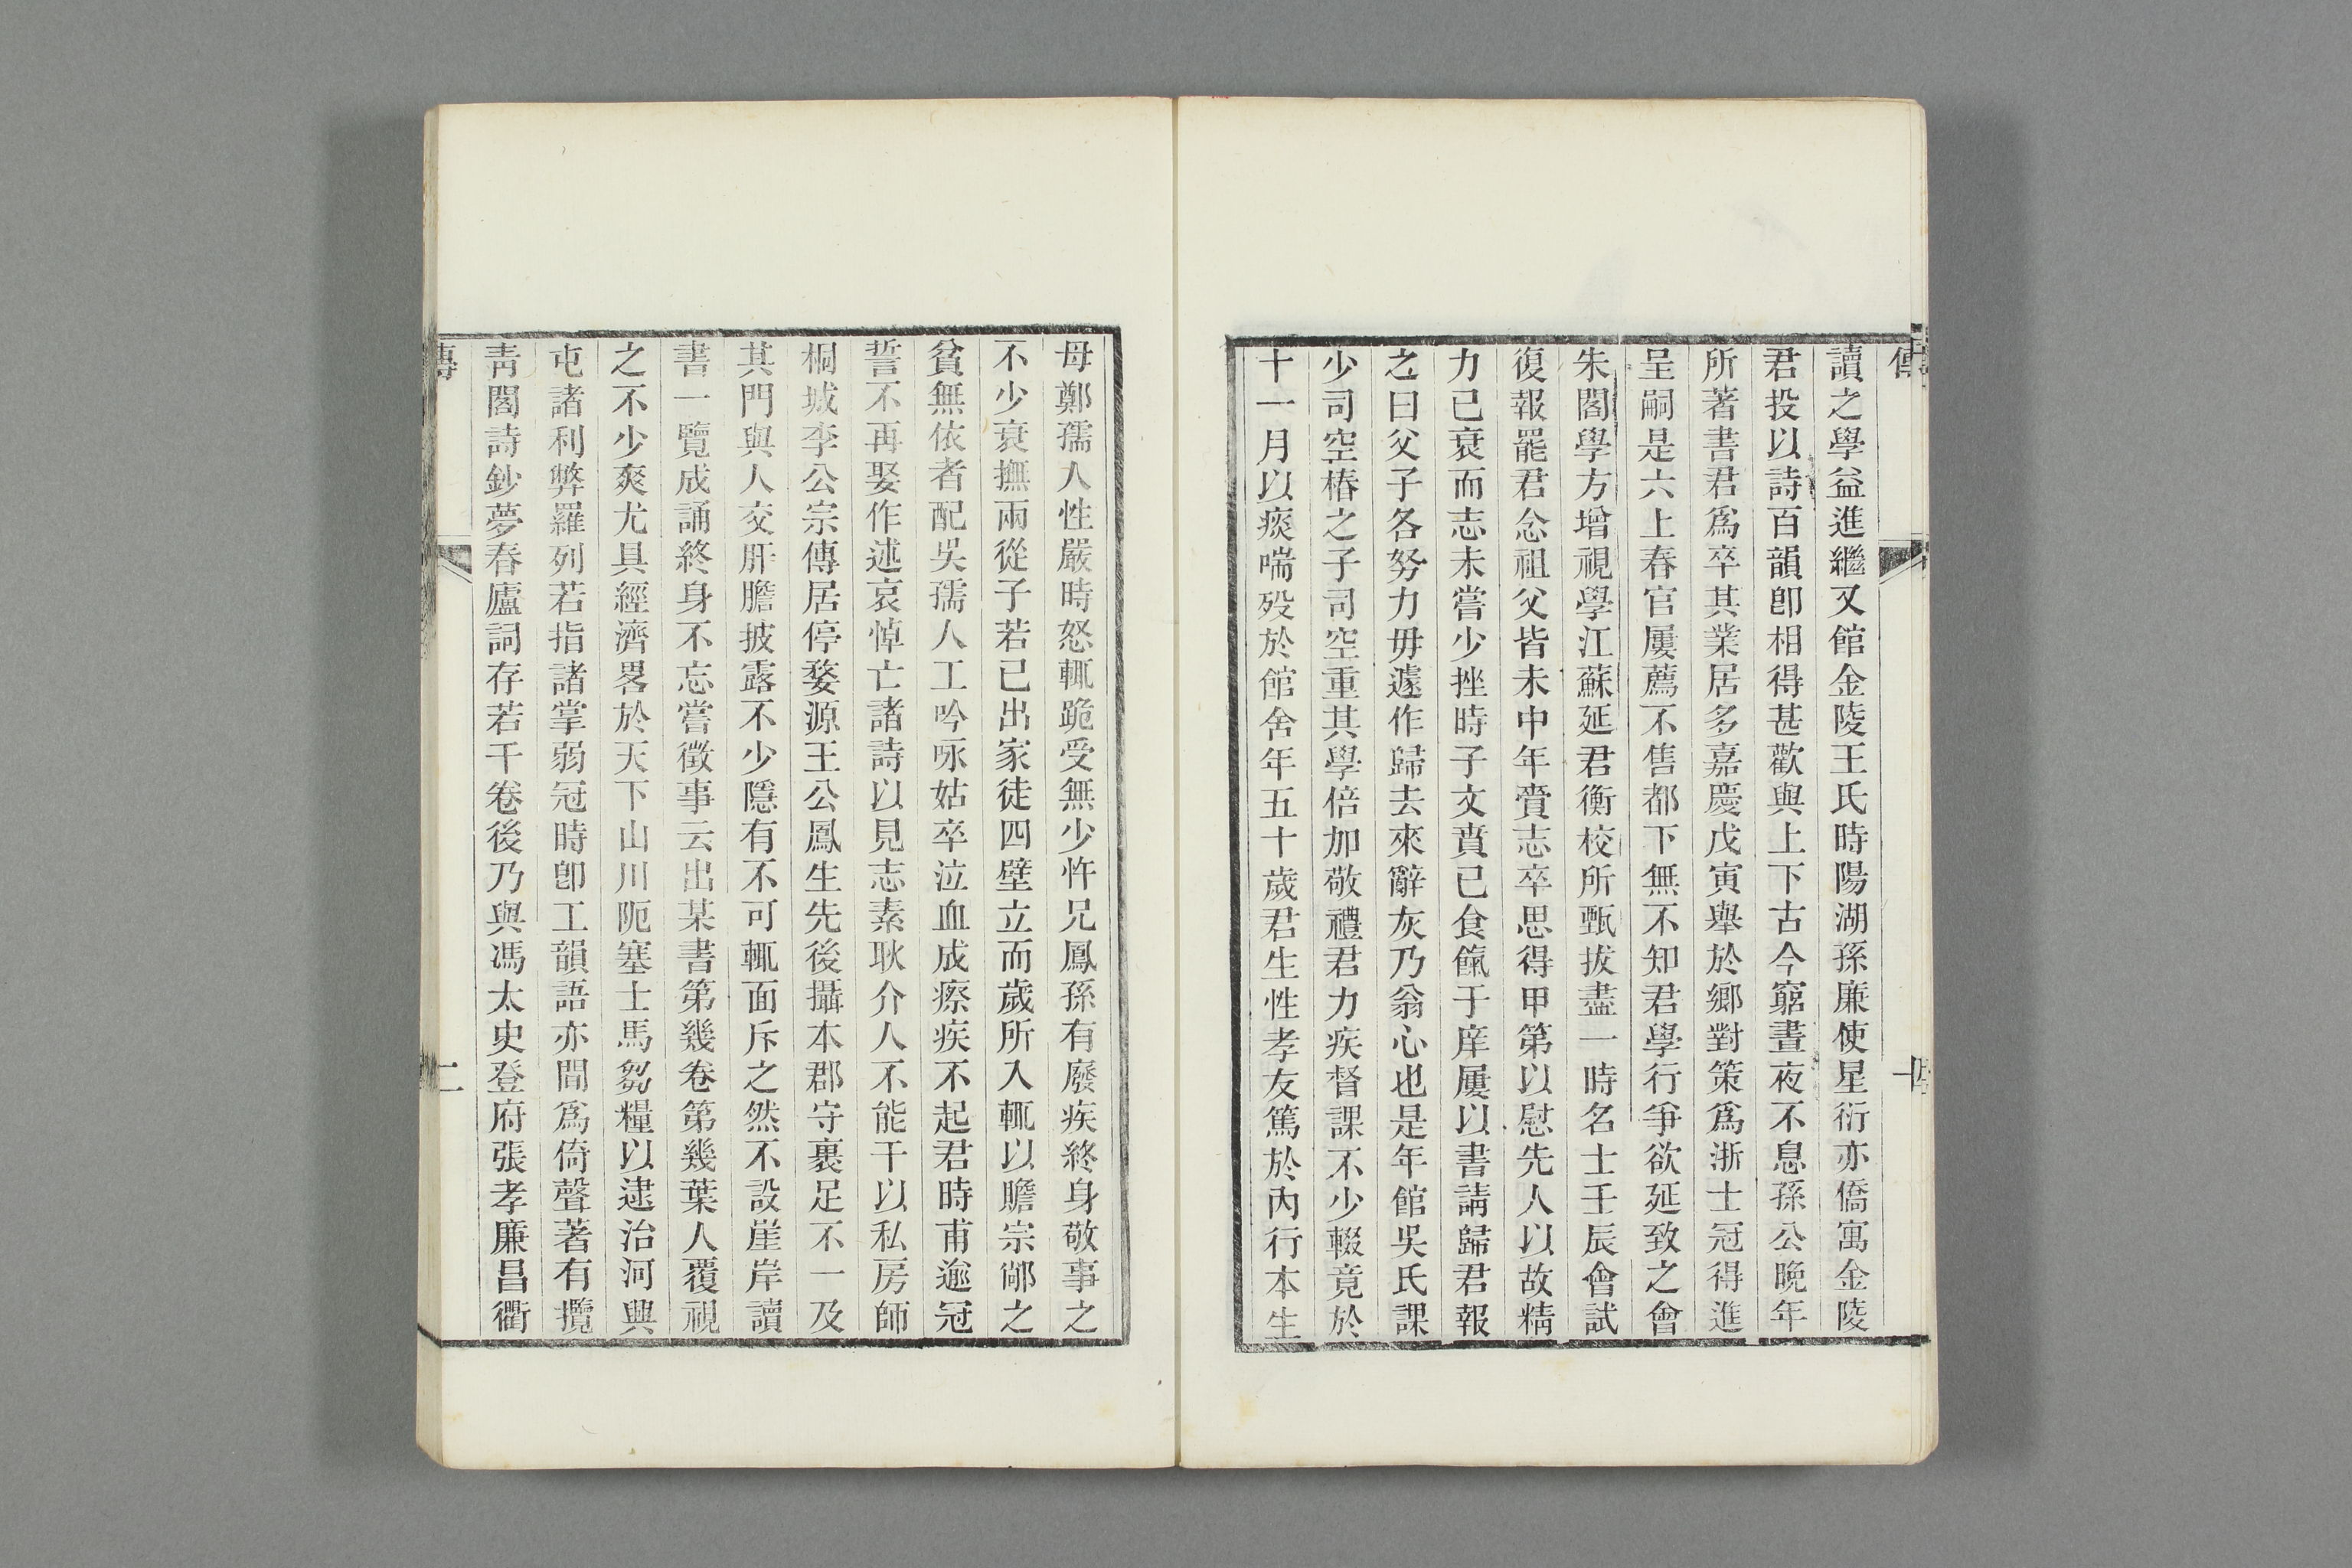 傳
讀之學益進繼又館金陵王氏時陽湖孫廉使星衍亦僑寓金陵
君投以詩百韻卽相得甚歡與上下古今窮晝夜不息孫公晚年
所著書君爲卒其業居多嘉慶戊寅舉於鄉對策爲浙士冠得進
呈嗣是六上春官屢薦不售都下無不知君學行爭欲延致之會
朱閣學方增視學江蘇延君衡校所甄拔盡一時名士壬辰會試
復報罷君念祖父皆未中年賫志卒思得甲第以慰先人以故精
力已衰而志未嘗少挫時子文賁已食餼于庠屢以書請歸君報
之曰父子各努力毋遽作歸去來辭灰乃翁心也是年館吳氏課
少司空椿之子司空重其學倍加敬禮君力疾督課不少輟竟於
十一月以痰喘歿於館舍年五十歲君生性孝友篤於內行本生
母鄭孺人性嚴時怒輒跪受無少忤兄鳳孫有廢疾終身敬事之
不少衰撫兩從子若已出家徒四壁立而歲所入輒以贍宗鄰之
貧無依者配吳孺人工吟咏姑卒泣血成瘵疾不起君時甫逾冠
誓不再娶作述哀悼亡諸詩以見志素耿介人不能干以私房師
桐城李公宗傳居停婺源王公鳳生先後攝本郡守裹足不一及
其門與人交肝膽披露不少隱有不可輒面斥之然不設崖岸讀
書一覽成誦終身不忘嘗徵事云出某書第幾卷第幾葉人覆視
之不少爽尤具經濟畧於天下山川阨塞士馬芻糧以逮治河興
屯諸利弊羅列若指諸掌弱冠時卽工韻語亦間爲倚聲著有攬
靑閣詩鈔夢春廬詞存若干卷後乃與馮太史登府張孝廉昌衢
二